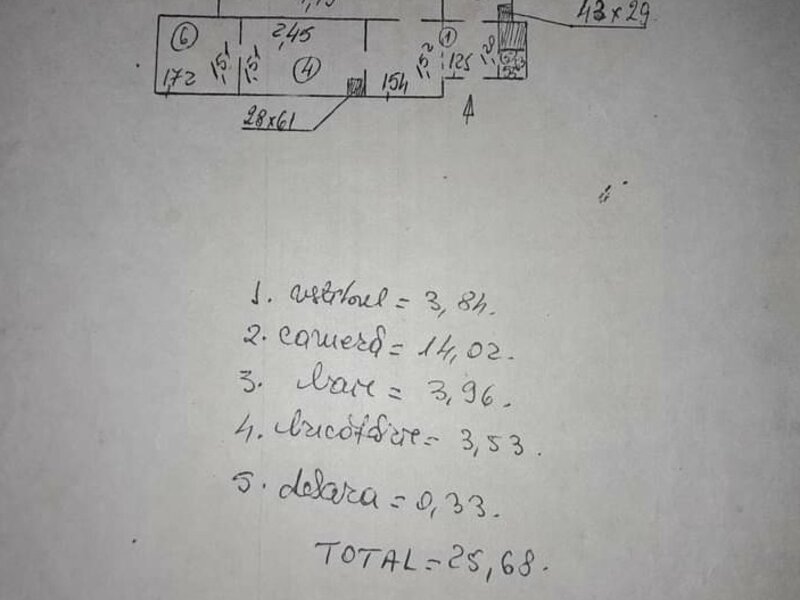 43x29.
6
2,45
1
4
1,72
1,51
1,51
1,52
125
154
28x61
1. vestibul = 3,84.
2. cameră = 14,02.
3. baie = 3,96.
4. bucătărie = 3,53.
5. debara = 0,33.
TOTAL = 25,68.